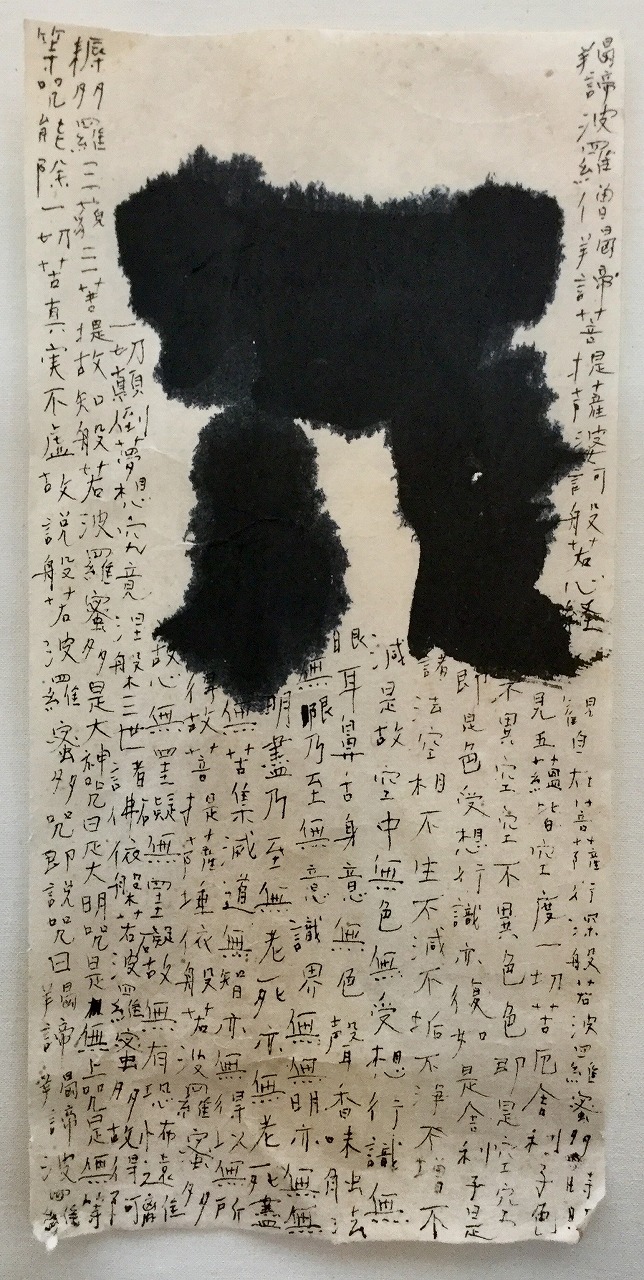 観自在菩薩行深般若波羅蜜多時照
見五蘊皆空度一切苦厄舎利子色
不異空空不異色色即是空空
即是色受想行識亦復如是舎利子是
諸法空相不生不滅不垢不浄不増不
減是故空中無色無受想行識無
眼耳鼻舌身意無色聲香味触法
無眼乃至無意識界無無明亦無無
明盡乃至無老死亦無老死盡
無苦集滅道無智亦無得以無所
得故菩提薩埵依般若波羅蜜多
故心無罣礙無罣礙故無有恐怖遠離
一切顛倒夢想究竟涅槃三世諸佛依般若波羅蜜多故得阿
耨多羅三藐三菩提故知般若波羅蜜多是大神呪是大明呪是無上呪是無等
等呪能除一切苦真実不虚故説般若波羅蜜多呪即説呪曰羯諦羯諦波羅
羯諦波羅僧羯諦菩提薩婆訶般若心経